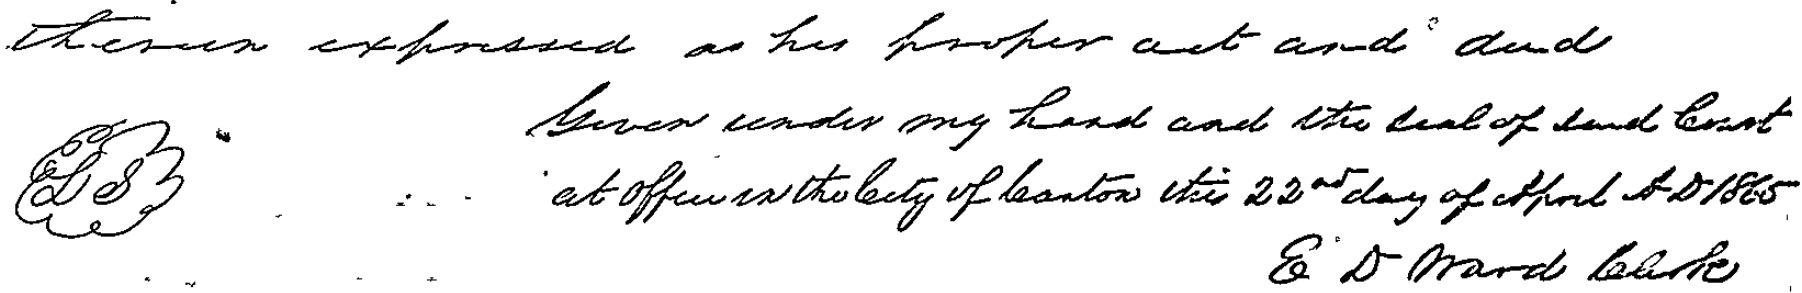 therein expressed as his proper act and deed
Given under my hand and the seal of said Court
L S
at office in the City of Canton this 22nd day of April A D 1865
E D Ward Clerk